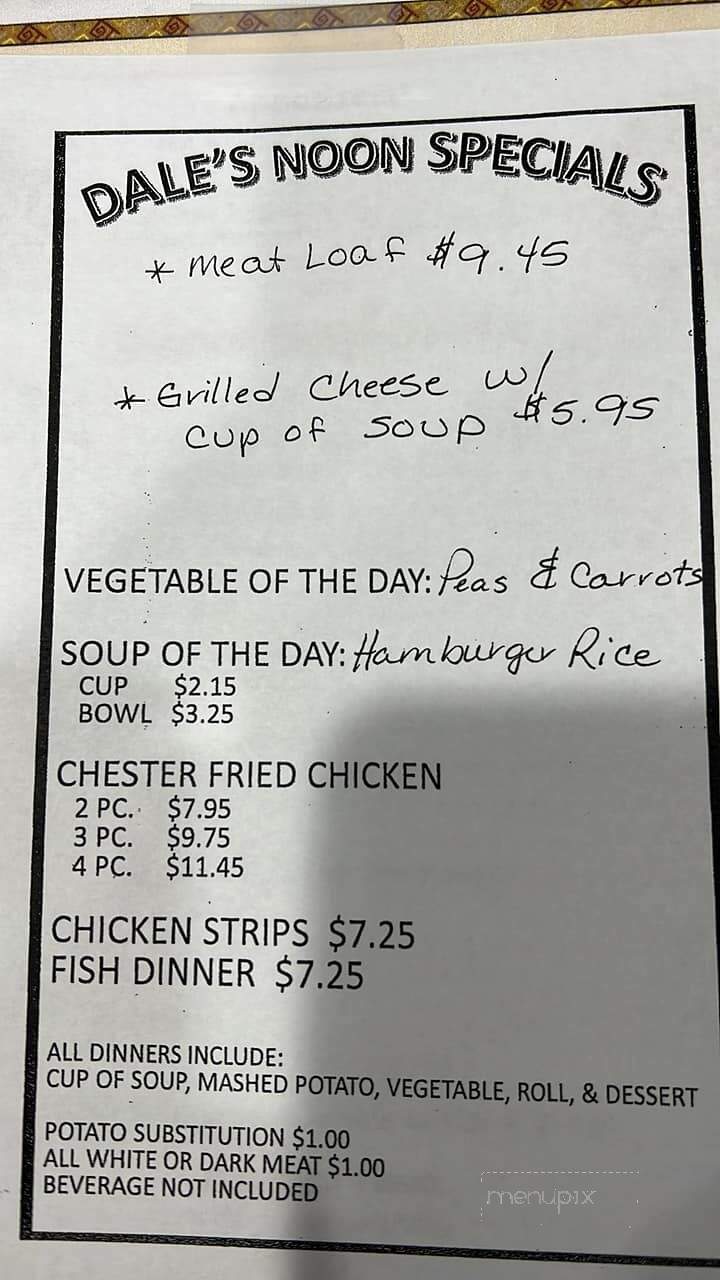 DALE'S NOON SPECIALS
* Meat Loaf $9.45
* Grilled Cheese w/
cup of soup $5.95
VEGETABLE OF THE DAY: Peas & Carrots
SOUP OF THE DAY: Hamburger Rice
CUP $2.15
BOWL $3.25
CHESTER FRIED CHICKEN
2 PC. $7.95
3 PC. $9.75
4 PC. $11.45
CHICKEN STRIPS $7.25
FISH DINNER $7.25
ALL DINNERS INCLUDE:
CUP OF SOUP, MASHED POTATO, VEGETABLE, ROLL, & DESSERT
POTATO SUBSTITUTION $1.00
ALL WHITE OR DARK MEAT $1.00
BEVERAGE NOT INCLUDED
menupix